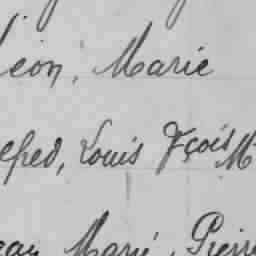 Léon, Marie
lfred, Louis Fçois M
ean Marie, Pierr